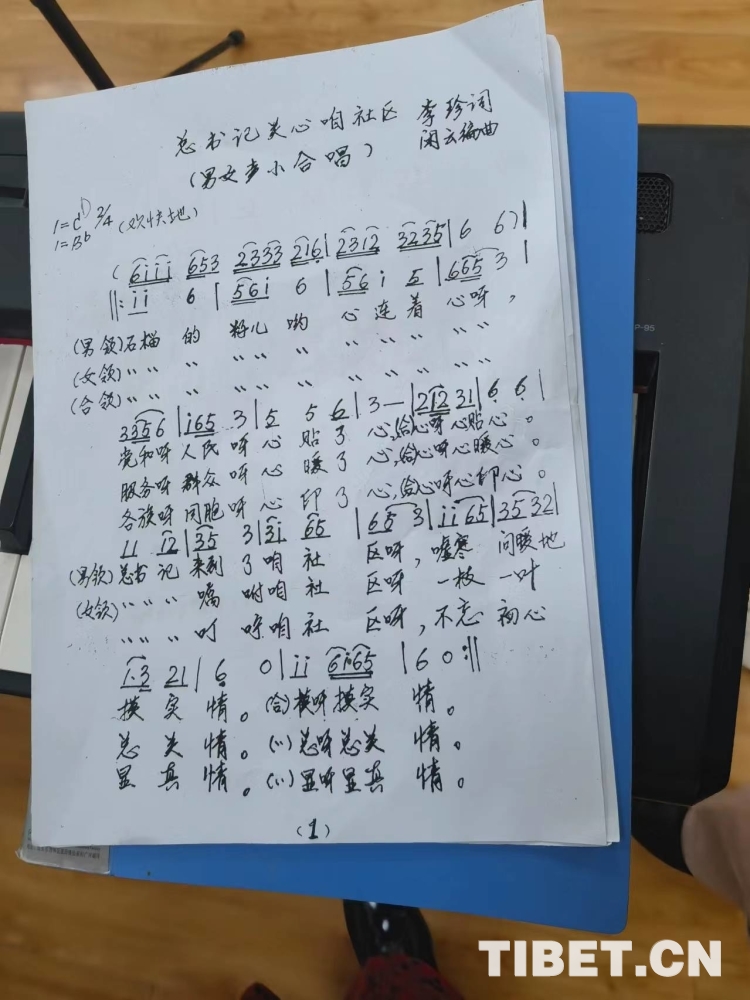 总书记关心咱社区 李珍词
(男女声小合唱) 闲云编曲
1=C 2/4 (欢快地)
1=Bb
( 6iii 653 2333 216 | 2312 3235 | 6 6 ) |
‖: ii 6 | 56i 6 | 56 i 5 | 665 3 |
(男领) 石榴 的 籽儿 哟 心 连 着 心呀,
(女领) 〃 〃 〃 〃〃 〃 〃 〃 〃 〃 〃
(合领) 〃 〃 〃 〃〃 〃 〃 〃 〃 〃 〃
3356 | i65 3 | 5 5 6 | 3 — | 212 31 | 6 6 |
党和呀 人民 呀 心 贴 了 心,(合)心呀心贴心。
服务呀 群众 呀 心 暖 了 心,(合)心呀心暖心。
各族呀 同胞 呀 心 印 了 心,(合)心呀心印心。
11 12 | 35 3 | 3i 65 | 65 3 | ii 65 | 35 32 |
(男领) 总书 记 来到 了 咱 社 区呀, 嘘寒 问暖 地
(女领) 〃 〃 〃 嘱 咐 咱 社 区呀 一枝 一叶
〃 〃 〃 叮 咛 咱 社 区呀, 不忘 初心
i·3 21 | 6 0 | ii 6i65 | 6 0 :‖
摸 实 情。(合)摸呀摸实 情。
总 关 情。(〃)总呀总关 情。
显 真 情。(〃)显呀显真 情。
(1)
P-95
TIBET.CN